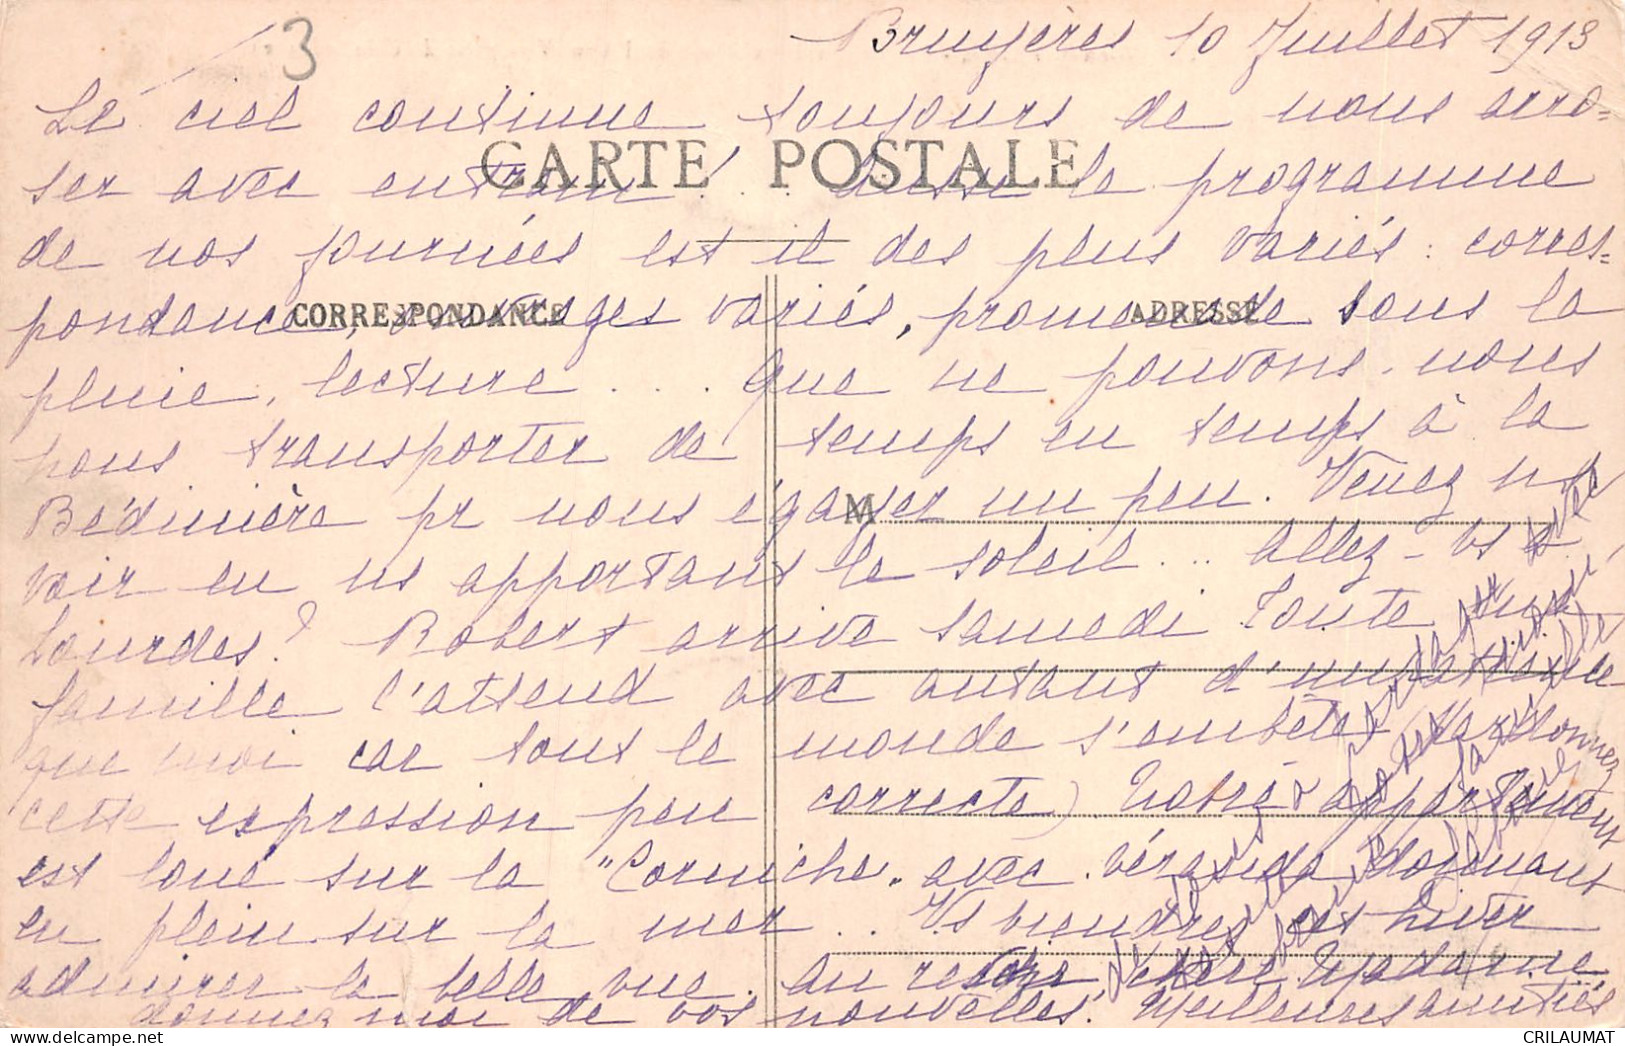 3
Bruyères 10 Juillet 1913
Le ciel continue toujours de nous arro=
ser avec entrain! .. Aussi le programme
CARTE POSTALE
de nos journées est-il des plus variés : corres=
pondance, ouvrages variés, promenade sous la
CORRESPONDANCE
ADRESSE
pluie, lecture ... Que ne pouvons-nous
nous transporter de temps en temps à la
Bédinière pr nous égayer un peu. Venez ns
M
voir en ns apportant le soleil ... Allez-vs à
Lourdes? Robert arrive samedi Toute ma
famille l'attend avec autant d'impatience
que moi car tout le monde s'embête (Pardonnez
cette expression peu correcte) Notre appartement
est loué sur la "Corniche" avec véranda donnant
en plein sur la mer... Vs viendrez cet hiver
admirer la belle vue. Au revoir chère Madame
donnez moi de vos nouvelles. Meilleures amitiés
CRILAUMAT